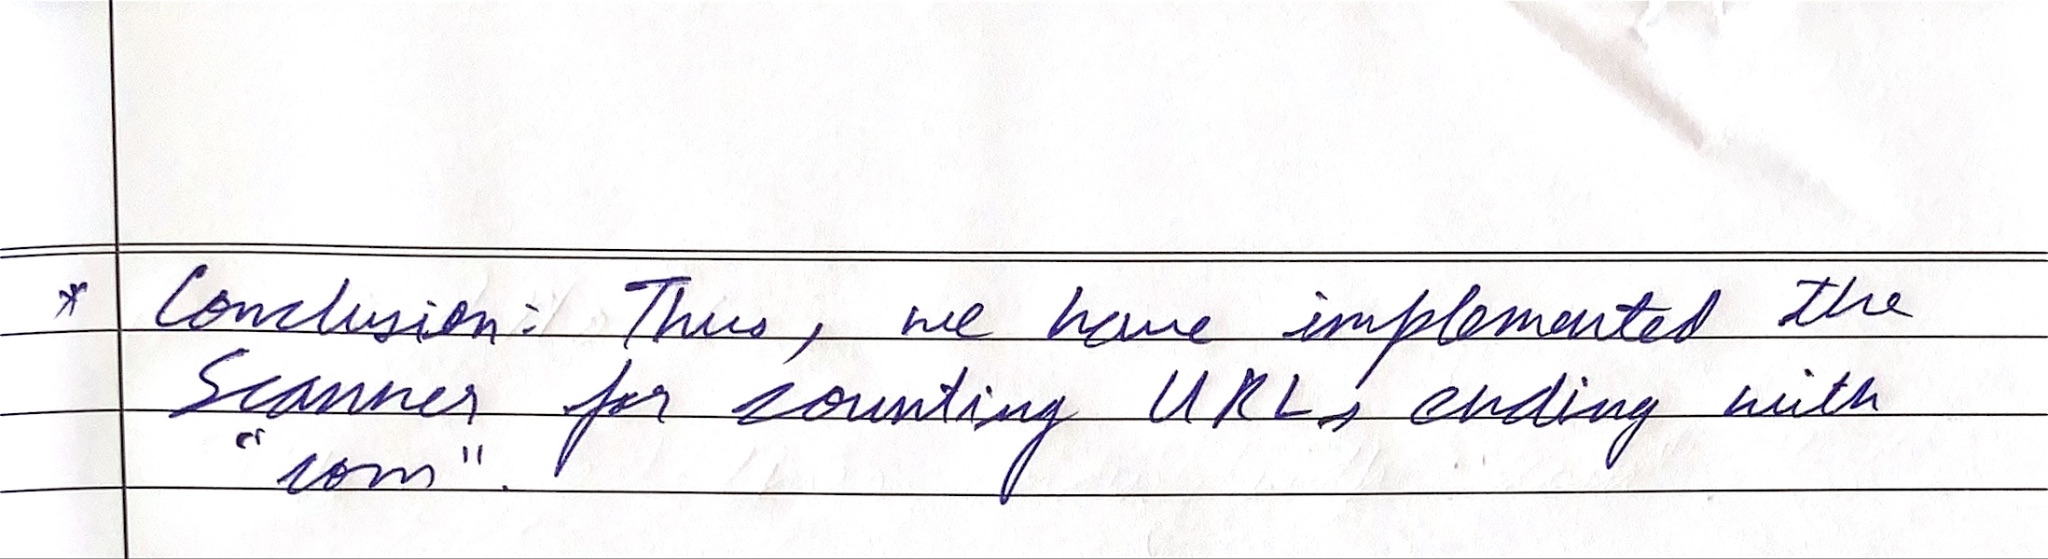 * Conclusion: Thus, we have implemented the
Scanner for counting URLs ending with
"com".